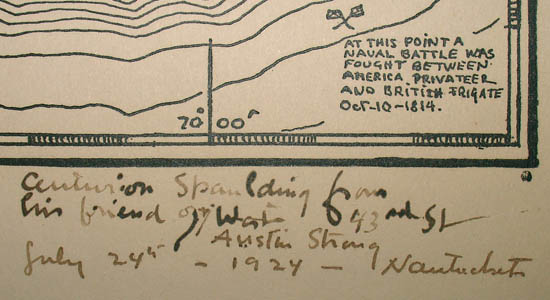 AT THIS POINT A
NAVAL BATTLE WAS
FOUGHT BETWEEN
AMERICA PRIVATEER
AND BRITISH FRIGATE
Oct-10-1814.
70° 00'
Centurion Spaulding from
his friend of West 43rd St
Austin Strong
July 24th - 1924 - Nantucket